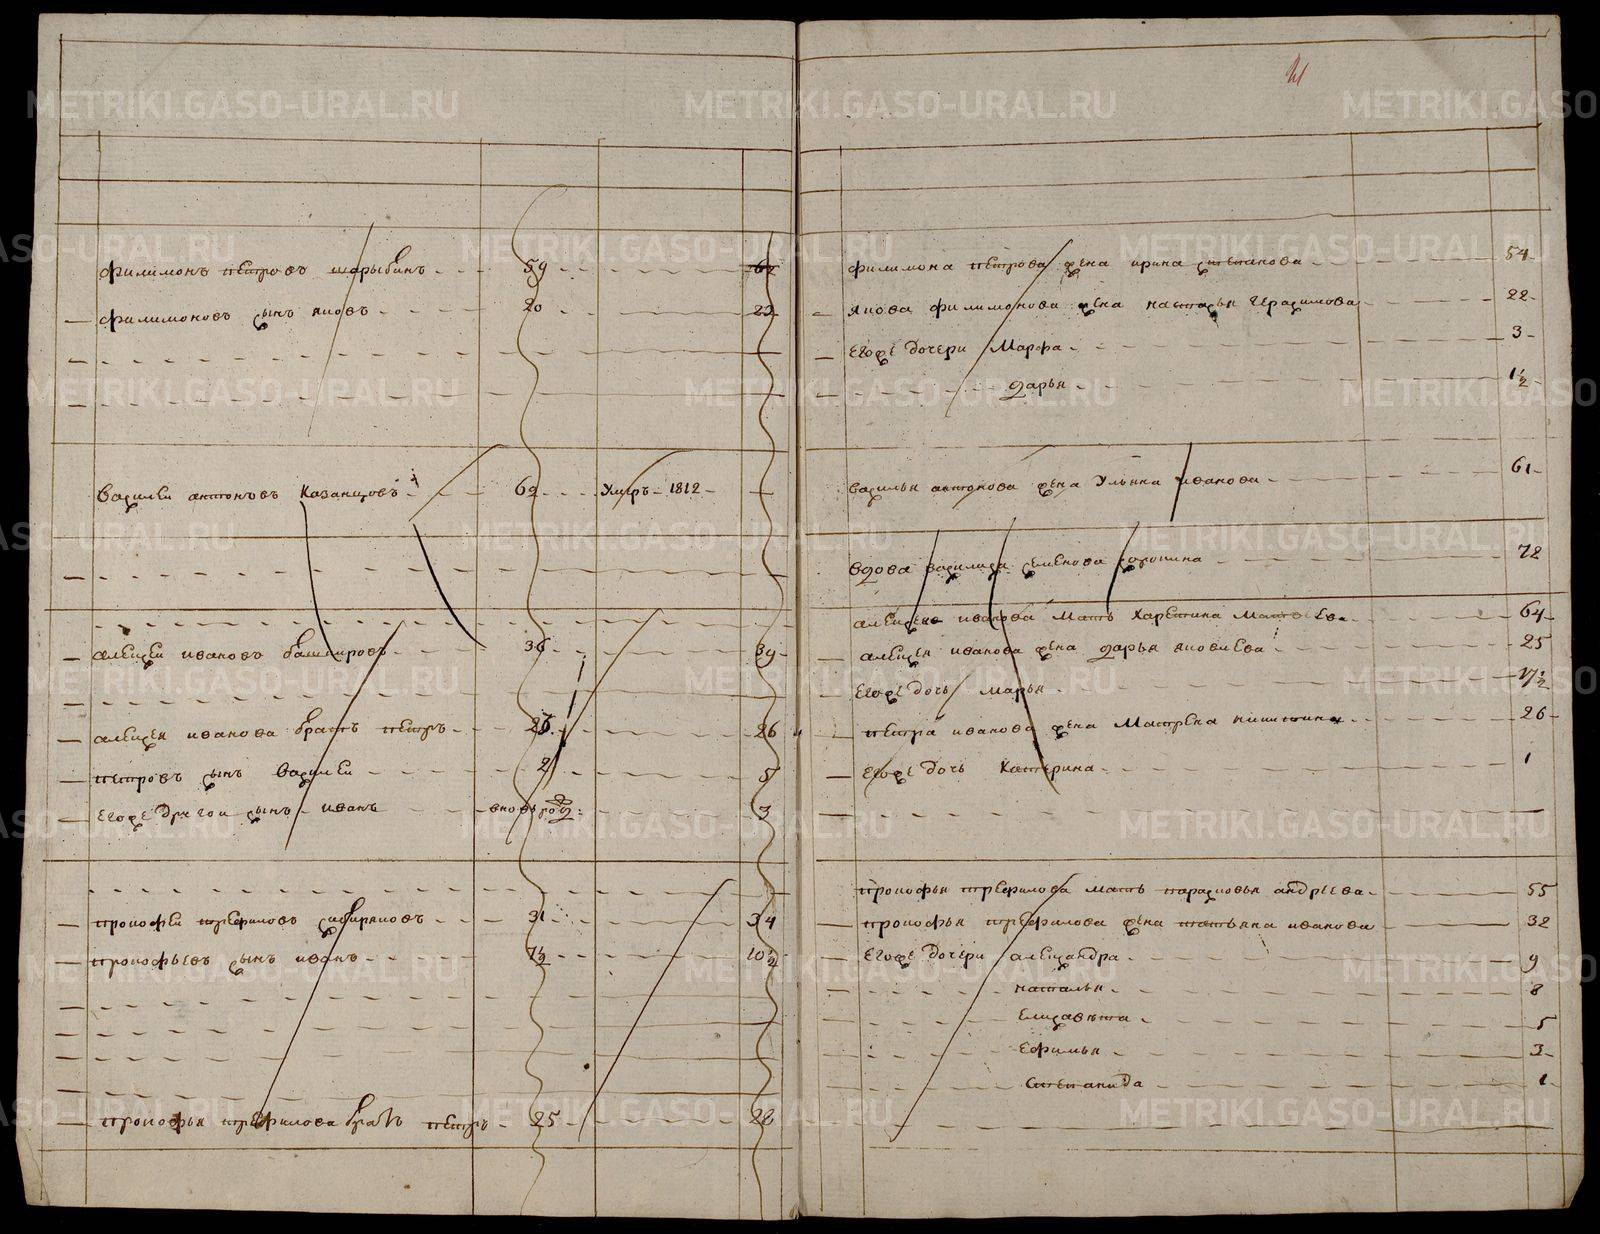 филимонъ петровъ шарыбинъ 59 62
филимоновъ сынъ яковъ 20 23
василеи антоновъ казанцовъ 62 Умръ 1812
алеѯеи ивановъ башкировъ 36 39
алеѯея иванова братъ петръ 26
петровъ сынъ василеи 2 5
егоже другои сынъ иванъ вновь рожд: 3
прокофеи перфиловъ сибиряковъ 31 34
прокофьевъ сынъ иванъ 7½ 10½
прокофья перфилова братъ петръ 25 28
21
филимона петрова жена ирина степанова 54
якова филимонова жена настасья герасимова 22
егоже дочери Марфа 3
дарья 1½
василья антонова жена Ульяна иванова 61
вдова василиса семенова 72
алеѯея иванова мать 64
алеѯея иванова жена дарья яковлева 25
егоже дочь марья ½
петра иванова жена Матрена никитина 26
егоже дочь Катерина 1
прокофья перфилова мать парасковья андреева 55
прокофья перфилова жена татьяна иванова 32
егоже дочери алеѯандра 9
наталья 8
Елизавета 5
Ефимья 3
Степанида 1
METRIKI.GASO-URAL.RU